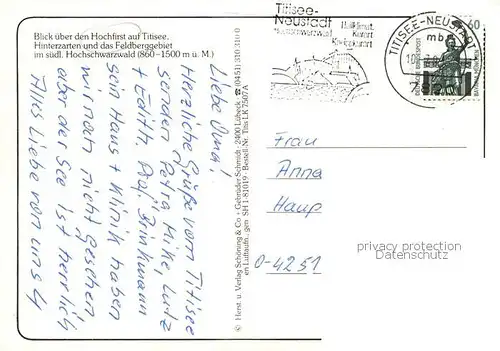 Blick über den Hochfirst auf Titisee,
Hinterzarten und das Feldberggebiet
im südl. Hochschwarzwald (860–1500 m ü. M.)
Liebe Oma!
Herzliche Grüße vom Titisee
senden Petra Mike, Lutz
+ Edith. Prof. Brinkmann
sein Haus + Klinik haben
wir noch nicht gesehen
aber der See ist herrlich
Alles Liebe von uns 4
© Herst. u. Verlag Schöning & Co + Gebrüder Schmidt · 2400 Lübeck · ☎ (0451) 310 310
en Luftaufn.: gen SH 1/81019 · Bestell-Nr. Tits LK 7507 A
Titisee-
Neustadt
Heilklimat.
Kurort
Kneippkurort
TITISEE-NEUSTADT
mb
60
Frau
Anna
Haup
O-4251
privacy protection
DATENSCHUTZ